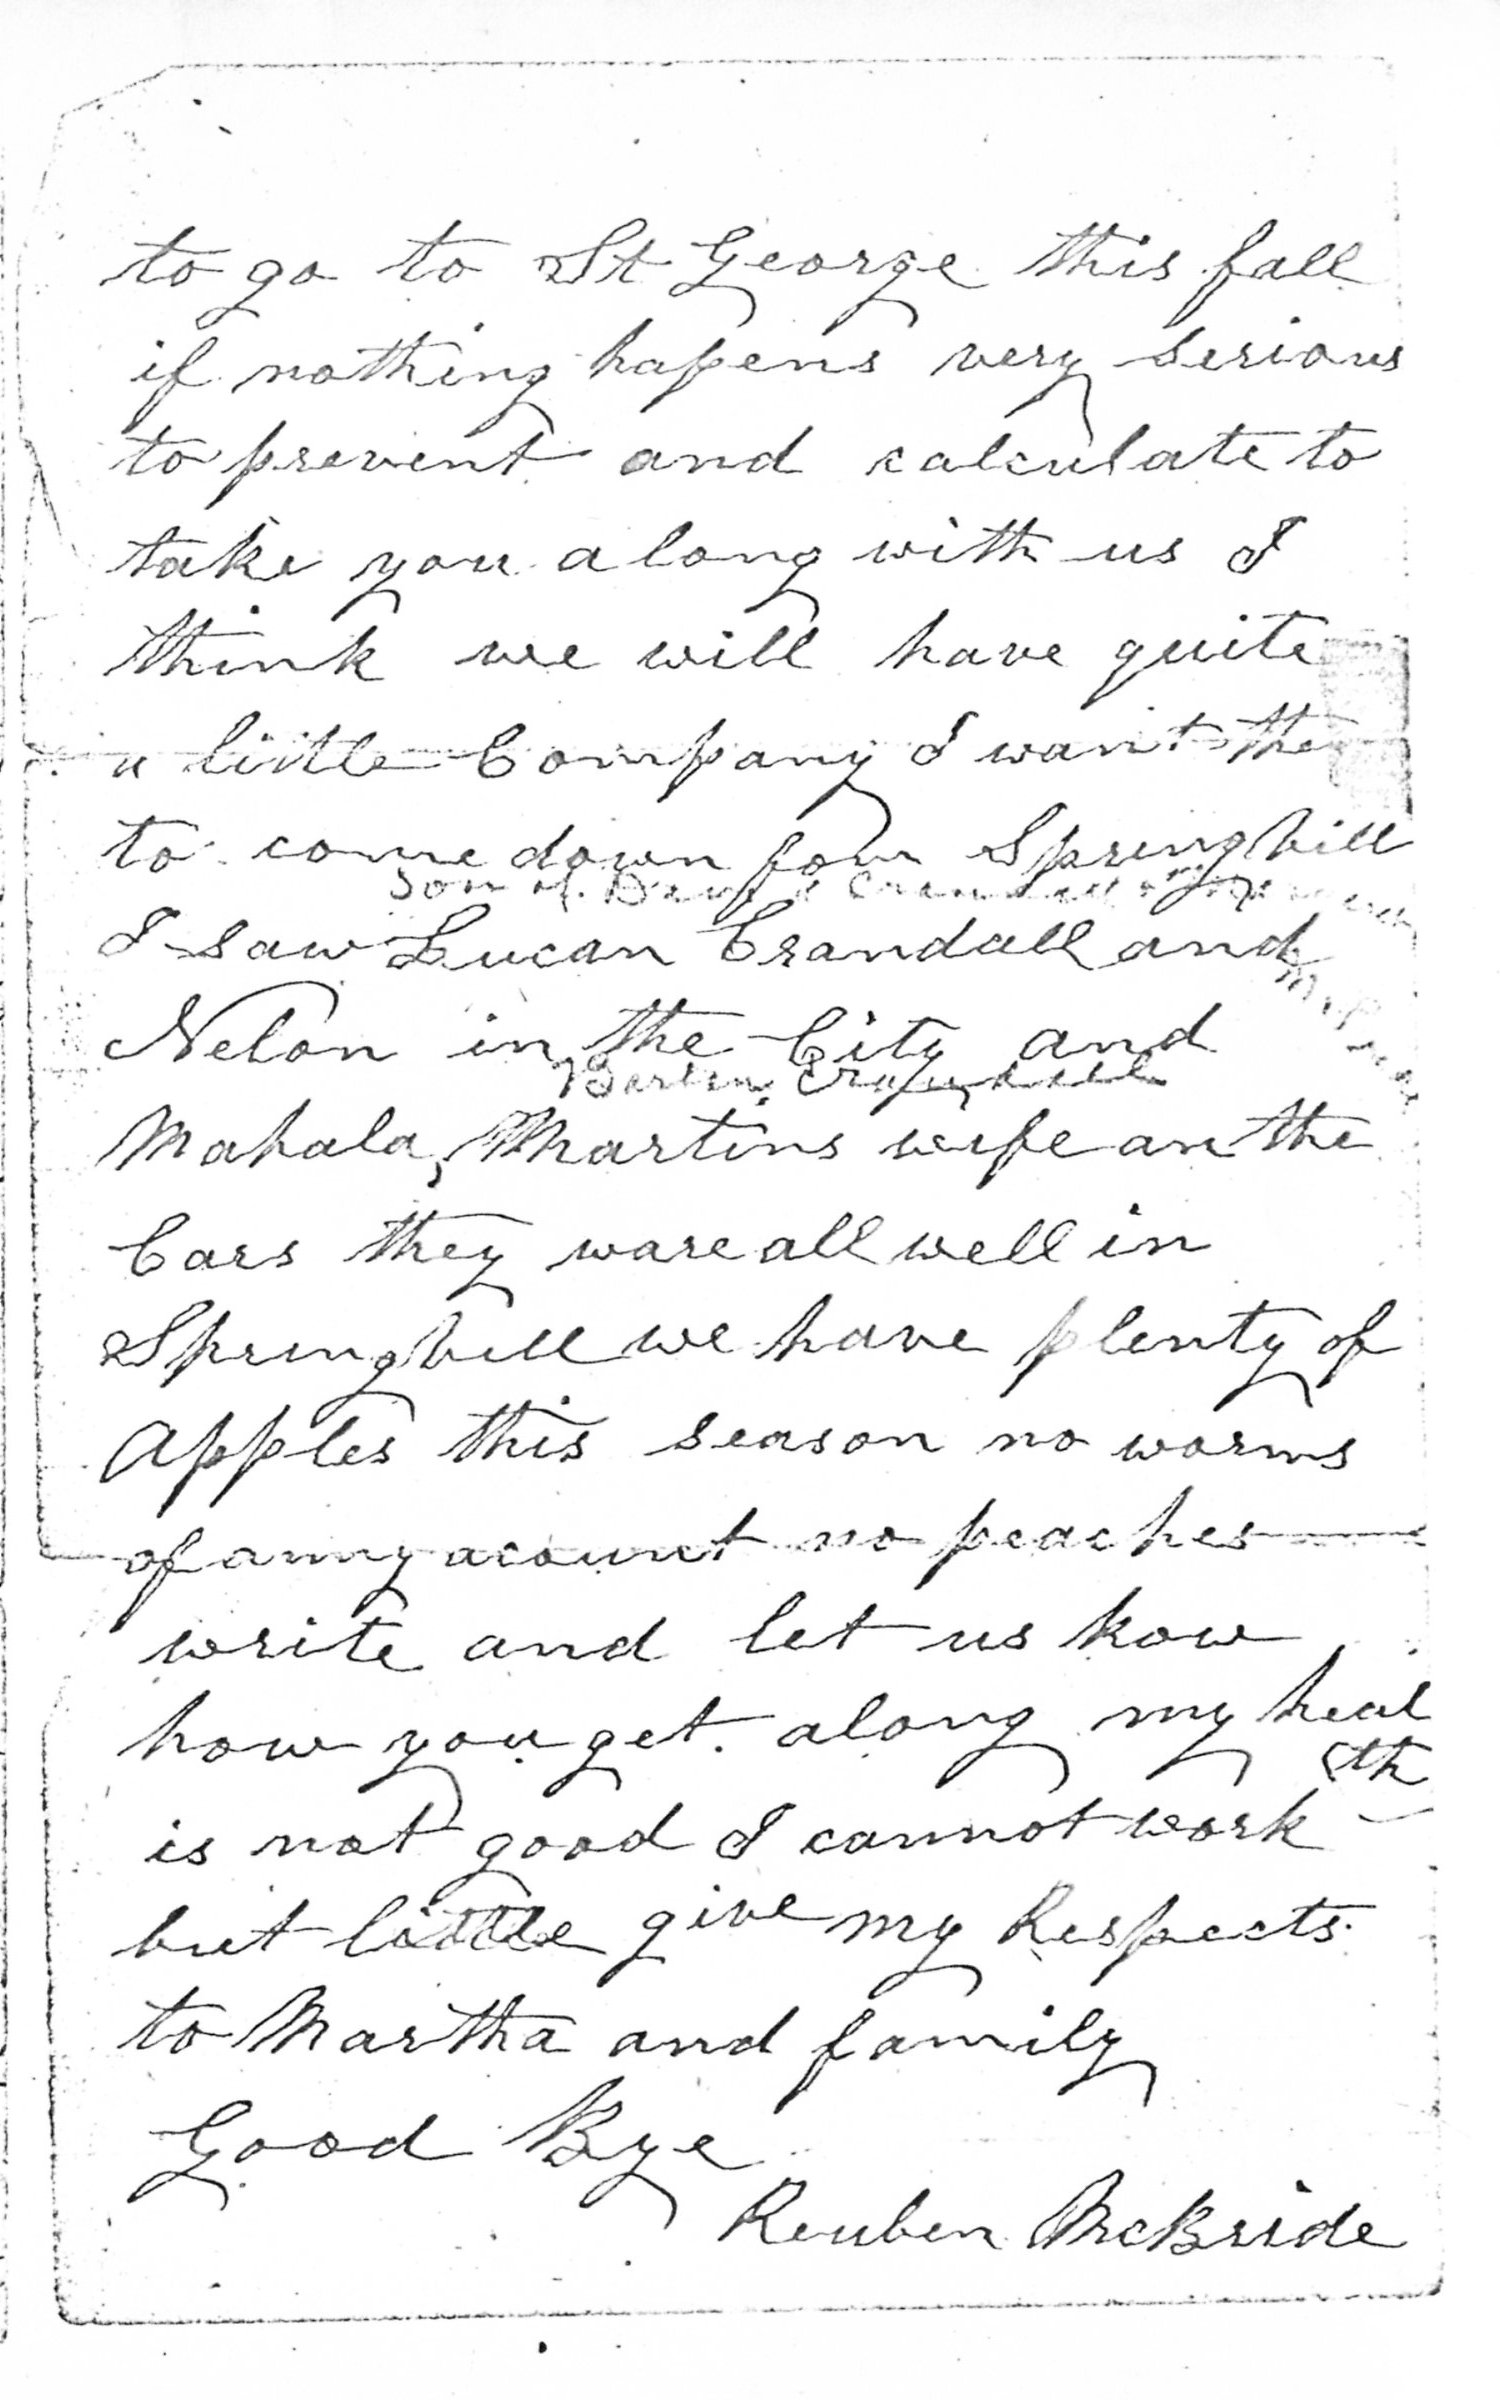 to go to St George this fall
if nothing hapens very serious
to prevent and calculate to
take you along with us I
think we will have quite
a little Company I want the
to come down fom Springvill
Son of
I saw Lucan Crandall and
Nelon in the City and
Crandall
Mahala, Martins wife an the
Cars they ware all well in
Springvill we have plenty of
Apples this season no worms
of anny acount no peaches
write and let us kow
how you get along my heal
th
is not good I cannot work
but little give my Respects
to Martha and family
Good Bye
Reuben McBride